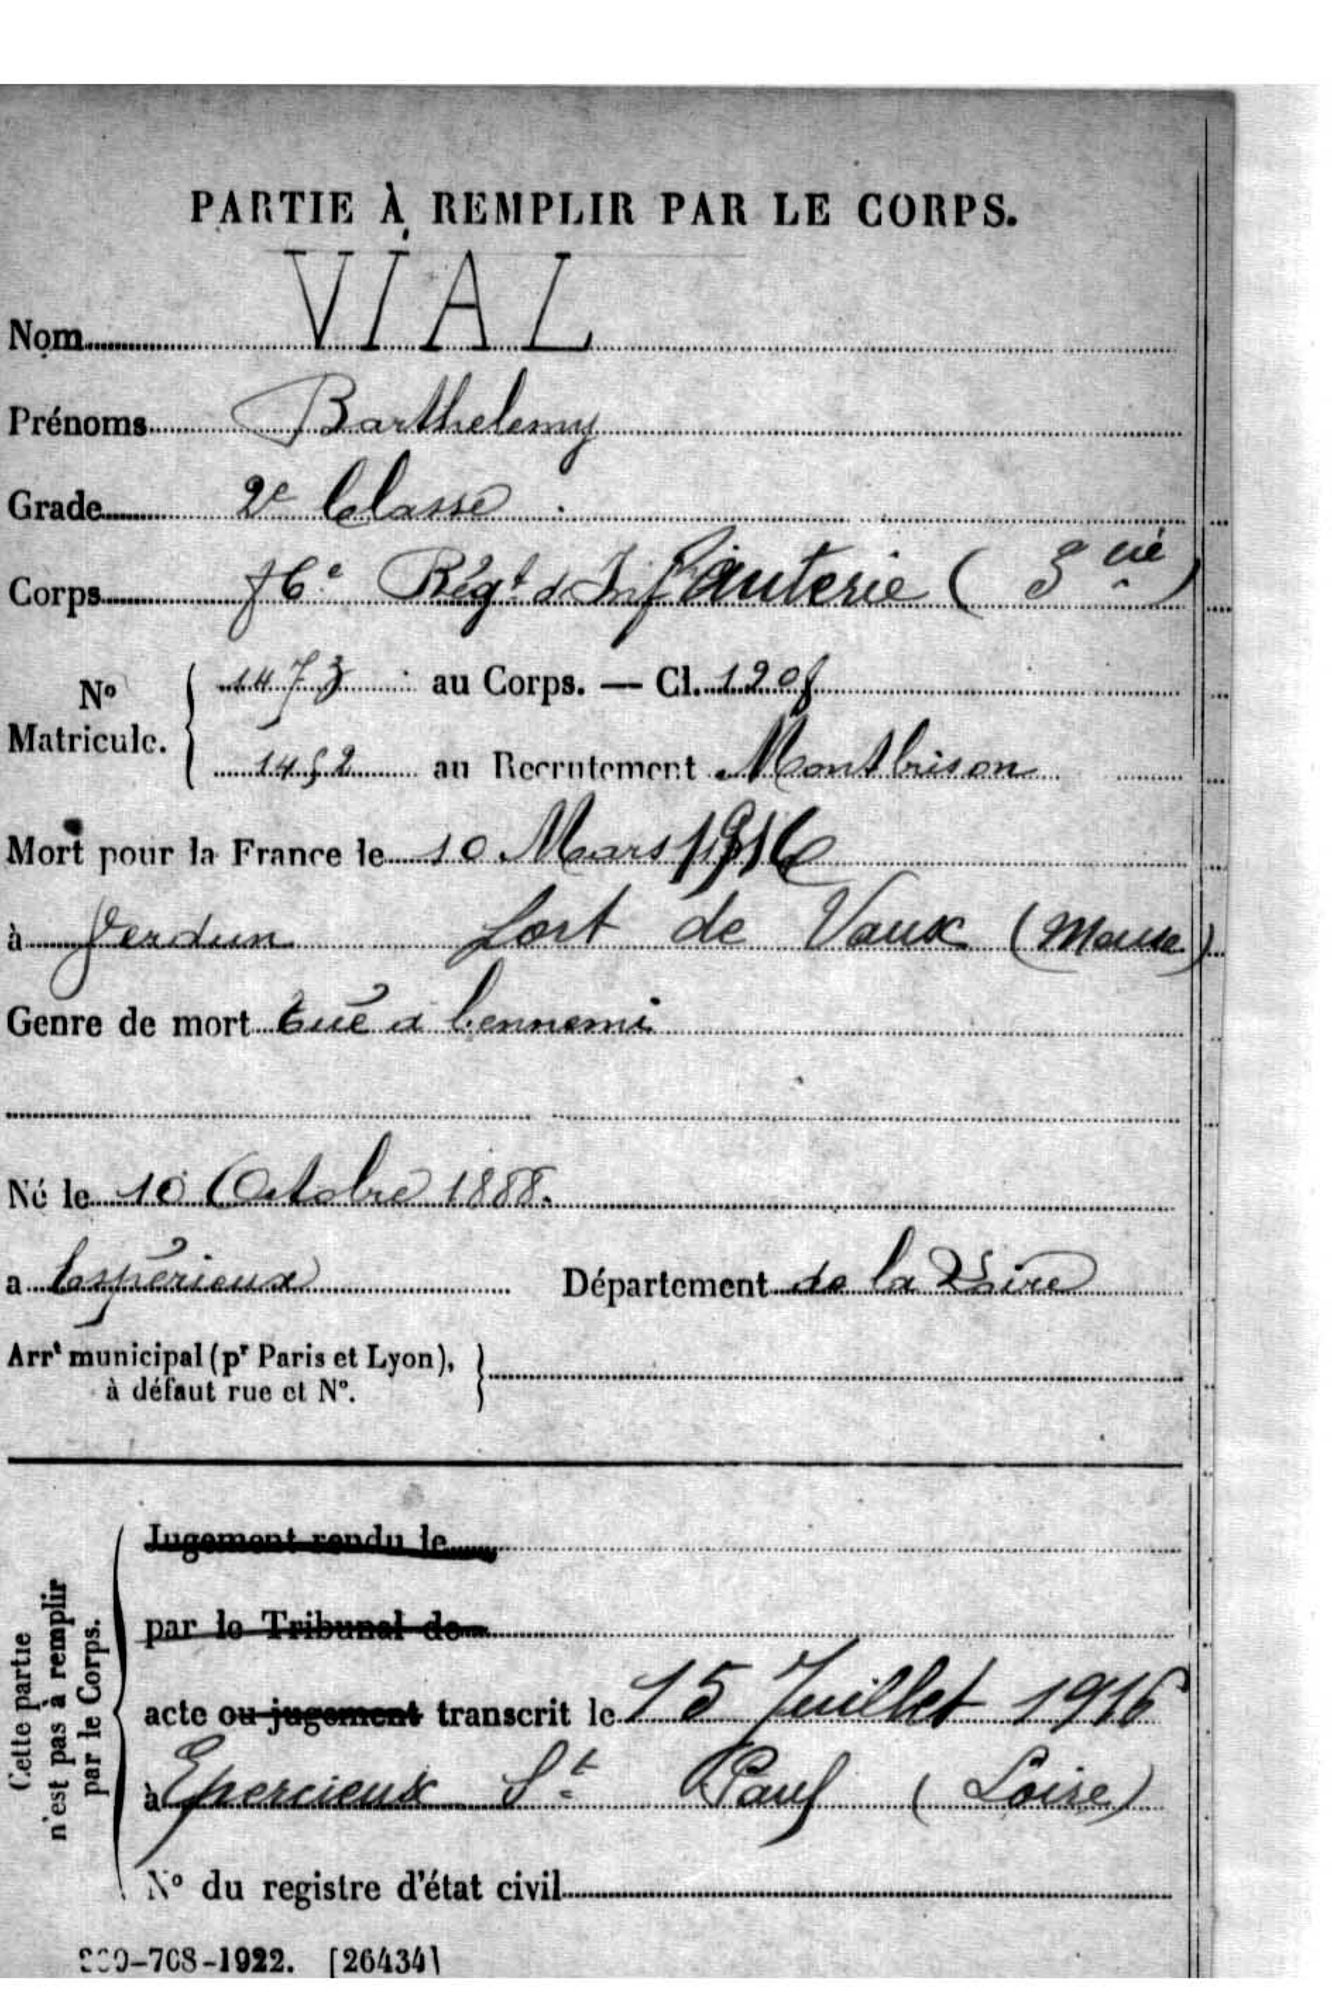 PARTIE À REMPLIR PAR LE CORPS.
Nom VIAL
Prénoms Barthelemy
Grade 2e Classe
Corps Régt d'Infanterie (3 cie)
No Matricule. 1473 au Corps. — Cl. 1908
1452 au Recrutement Montbrison
Mort pour la France le 10 Mars 1916
à Verdun fort de Vaux (Meuse)
Genre de mort tué a l'ennemi
Né le 10 Octobre 1888.
a Espérieux Département de la Loire
Arrt municipal (pr Paris et Lyon),
à défaut rue et No.
Cette partie
n'est pas à remplir
par le Corps.
Jugement rendu le
par le Tribunal de
acte ou jugement transcrit le 15 Juillet 1916
à Epercieux St Paul (Loire)
No du registre d'état civil
-708-1922. [26434]